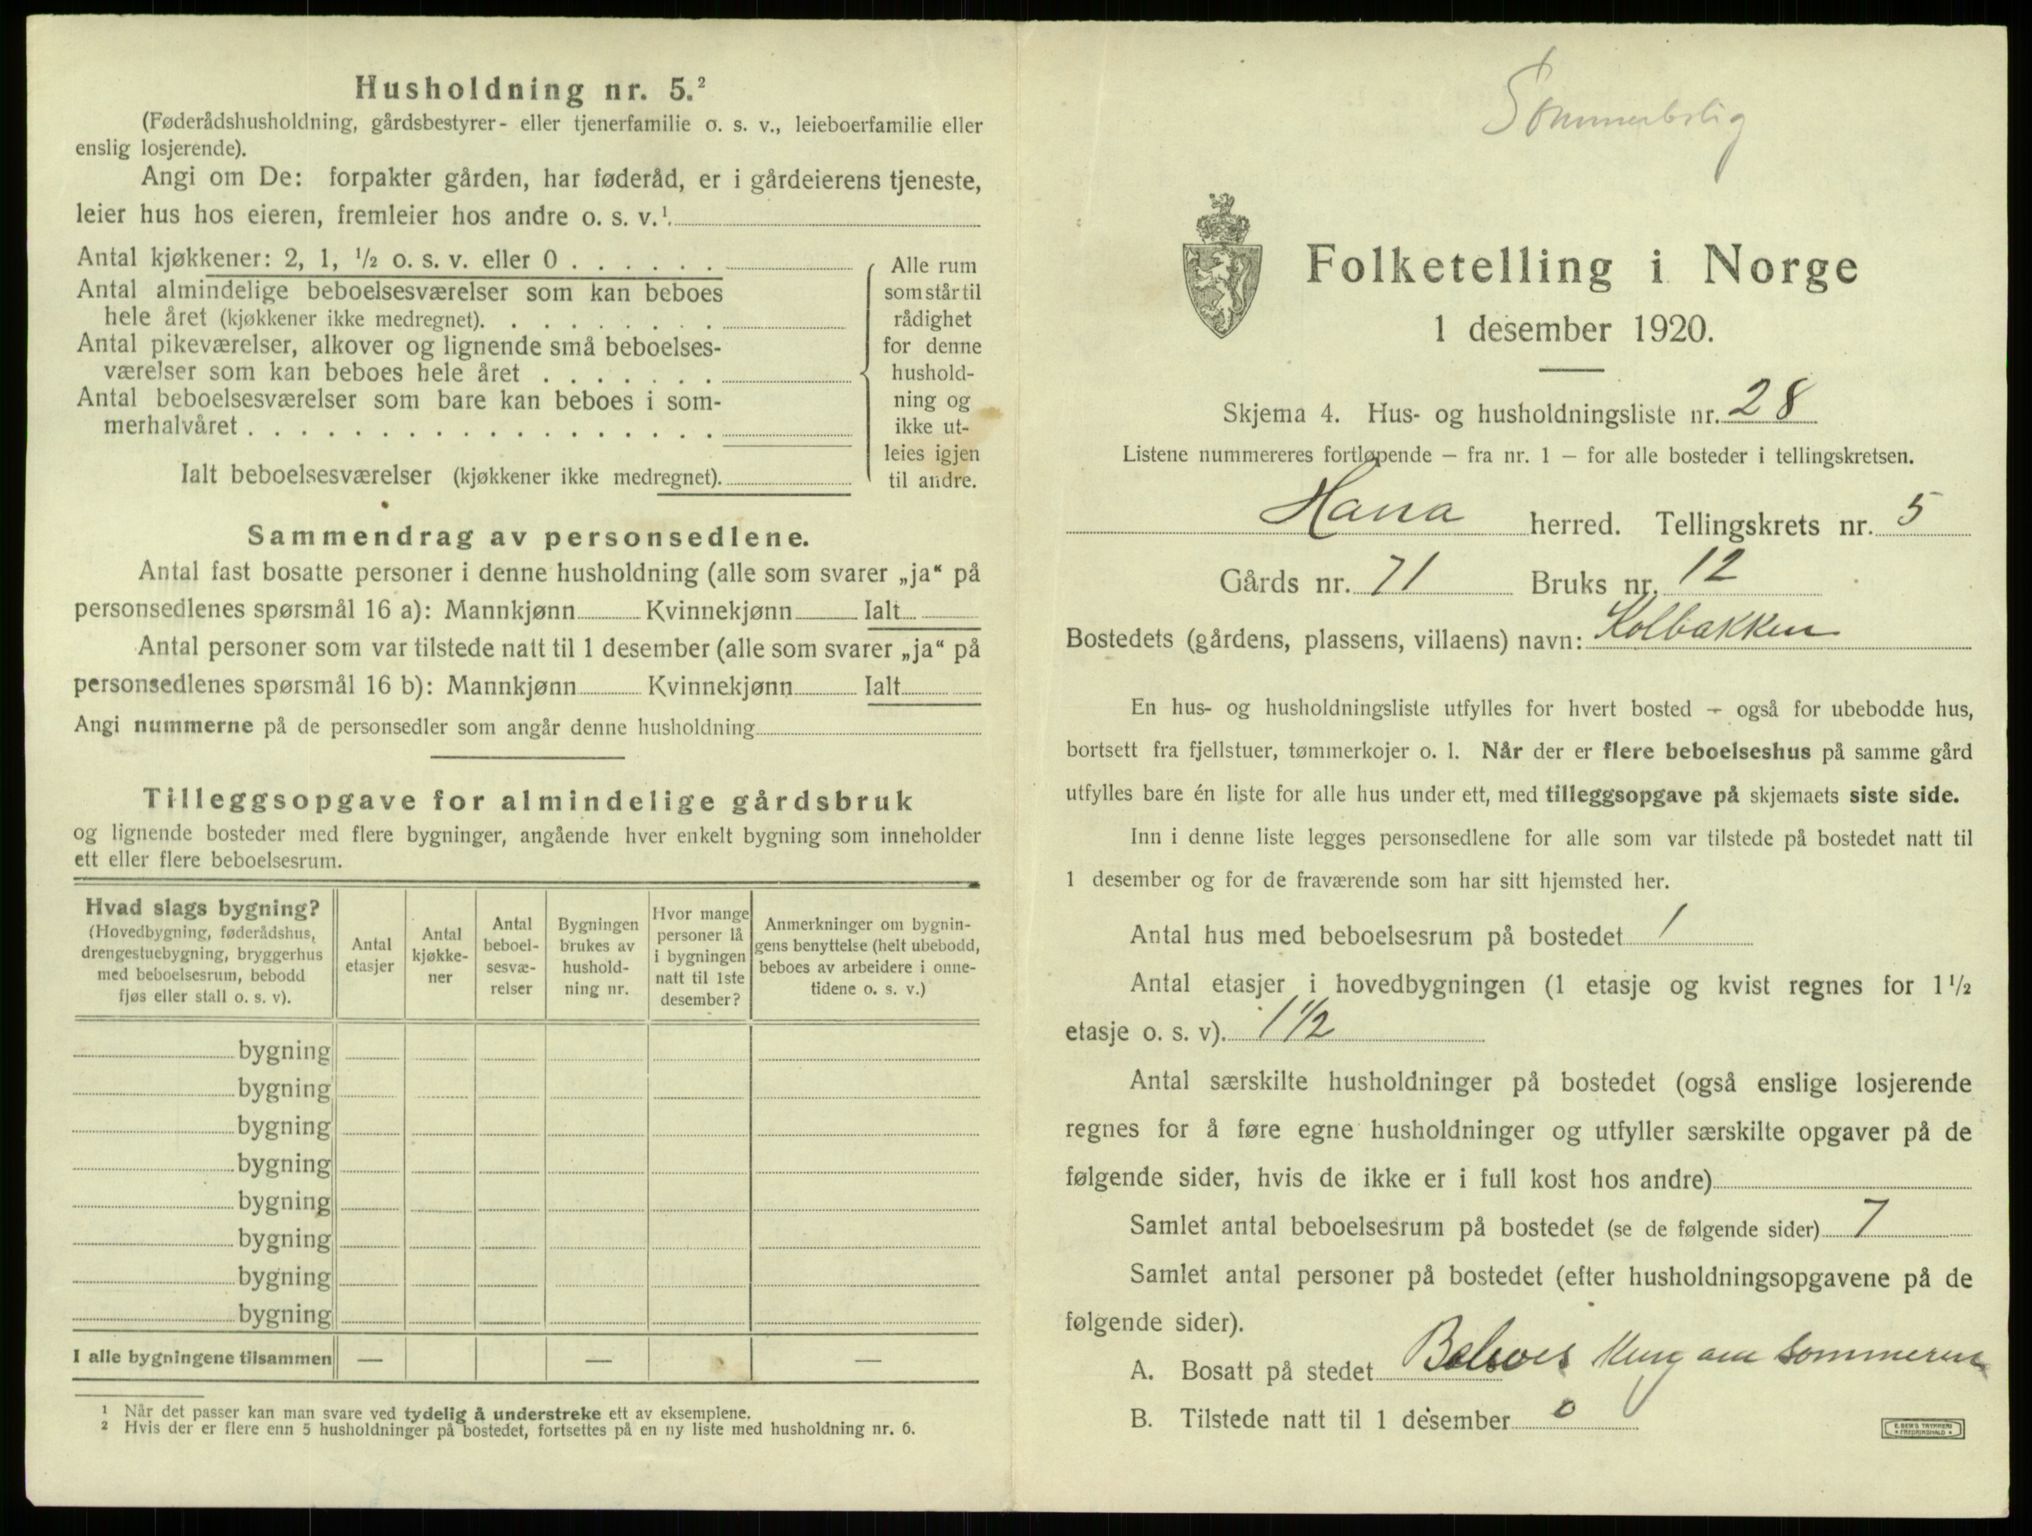 Husholdning nr. 5.²
(Føderådshusholdning, gårdsbestyrer- eller tjenerfamilie o. s. v., leieboerfamilie eller
enslig losjerende).
Angi om De: forpakter gården, har føderåd, er i gårdeierens tjeneste,
leier hus hos eieren, fremleier hos andre o. s. v.¹
Antal kjøkkener: 2, 1, ½ o. s. v. eller 0
Antal almindelige beboelsesværelser som kan beboes
hele året (kjøkkener ikke medregnet).
Antal pikeværelser, alkover og lignende små beboelses-
værelser som kan beboes hele året
Antal beboelsesværelser som bare kan beboes i som-
merhalvåret
Ialt beboelsesværelser (kjøkkener ikke medregnet).
Alle rum
som står til
rådighet
for denne
hushold-
ning og
ikke ut-
leies igjen
til andre.
Sammendrag av personsedlene.
Antal fast bosatte personer i denne husholdning (alle som svarer „ja“ på
personsedlenes spørsmål 16 a): Mannkjønn Kvinnekjønn Ialt
Antal personer som var tilstede natt til 1 desember (alle som svarer „ja“ på
personsedlenes spørsmål 16 b): Mannkjønn Kvinnekjønn Ialt
Angi nummerne på de personsedler som angår denne husholdning
Tilleggsopgave for almindelige gårdsbruk
og lignende bosteder med flere bygninger, angående hver enkelt bygning som inneholder
ett eller flere beboelsesrum.
Hvad slags bygning?
(Hovedbygning, føderådshus,
drengestuebygning, bryggerhus
med beboelsesrum, bebodd
fjøs eller stall o. s. v).
Antal
etasjer
Antal
kjøkke-
ner
Antal
beboel-
sesvæ-
relser
Bygningen
brukes av
hushold-
ning nr.
Hvor mange
personer lå
i bygningen
natt til 1ste
desember?
Anmerkninger om bygnin-
gens benyttelse (helt ubebodd,
beboes av arbeidere i onne-
tidene o. s. v.)
bygning
bygning
bygning
bygning
bygning
bygning
bygning
bygning
I alle bygningene tilsammen — — —
¹ Når det passer kan man svare ved tydelig å understreke ett av eksemplene.
² Hvis der er flere enn 5 husholdninger på bostedet, fortsettes på en ny liste med husholdning nr. 6.
Sommerbolig
Folketelling i Norge
1 desember 1920.
Skjema 4. Hus- og husholdningsliste nr. 28
Listene nummereres fortløpende – fra nr. 1 – for alle bosteder i tellingskretsen.
Hanna herred. Tellingskrets nr. 5
Gårds nr. 71 Bruks nr. 12
Bostedets (gårdens, plassens, villaens) navn: Kolbakken
En hus- og husholdningsliste utfylles for hvert bosted – også for ubebodde hus,
bortsett fra fjellstuer, tømmerkojer o. l. Når der er flere beboelseshus på samme gård
utfylles bare én liste for alle hus under ett, med tilleggsopgave på skjemaets siste side.
Inn i denne liste legges personsedlene for alle som var tilstede på bostedet natt til
1 desember og for de fraværende som har sitt hjemsted her.
Antal hus med beboelsesrum på bostedet 1
Antal etasjer i hovedbygningen (1 etasje og kvist regnes for 1 ½
etasje o. s. v). 1 ½
Antal særskilte husholdninger på bostedet (også enslige losjerende
regnes for å føre egne husholdninger og utfyller særskilte opgaver på de
følgende sider, hvis de ikke er i full kost hos andre)
Samlet antal beboelsesrum på bostedet (se de følgende sider) 7
Samlet antal personer på bostedet (efter husholdningsopgavene på de
følgende sider).
A. Bosatt på stedet Beboes kun om sommeren
B. Tilstede natt til 1 desember 0
E. SEM'S TRYKKERI
• FREDRIKSHALD •